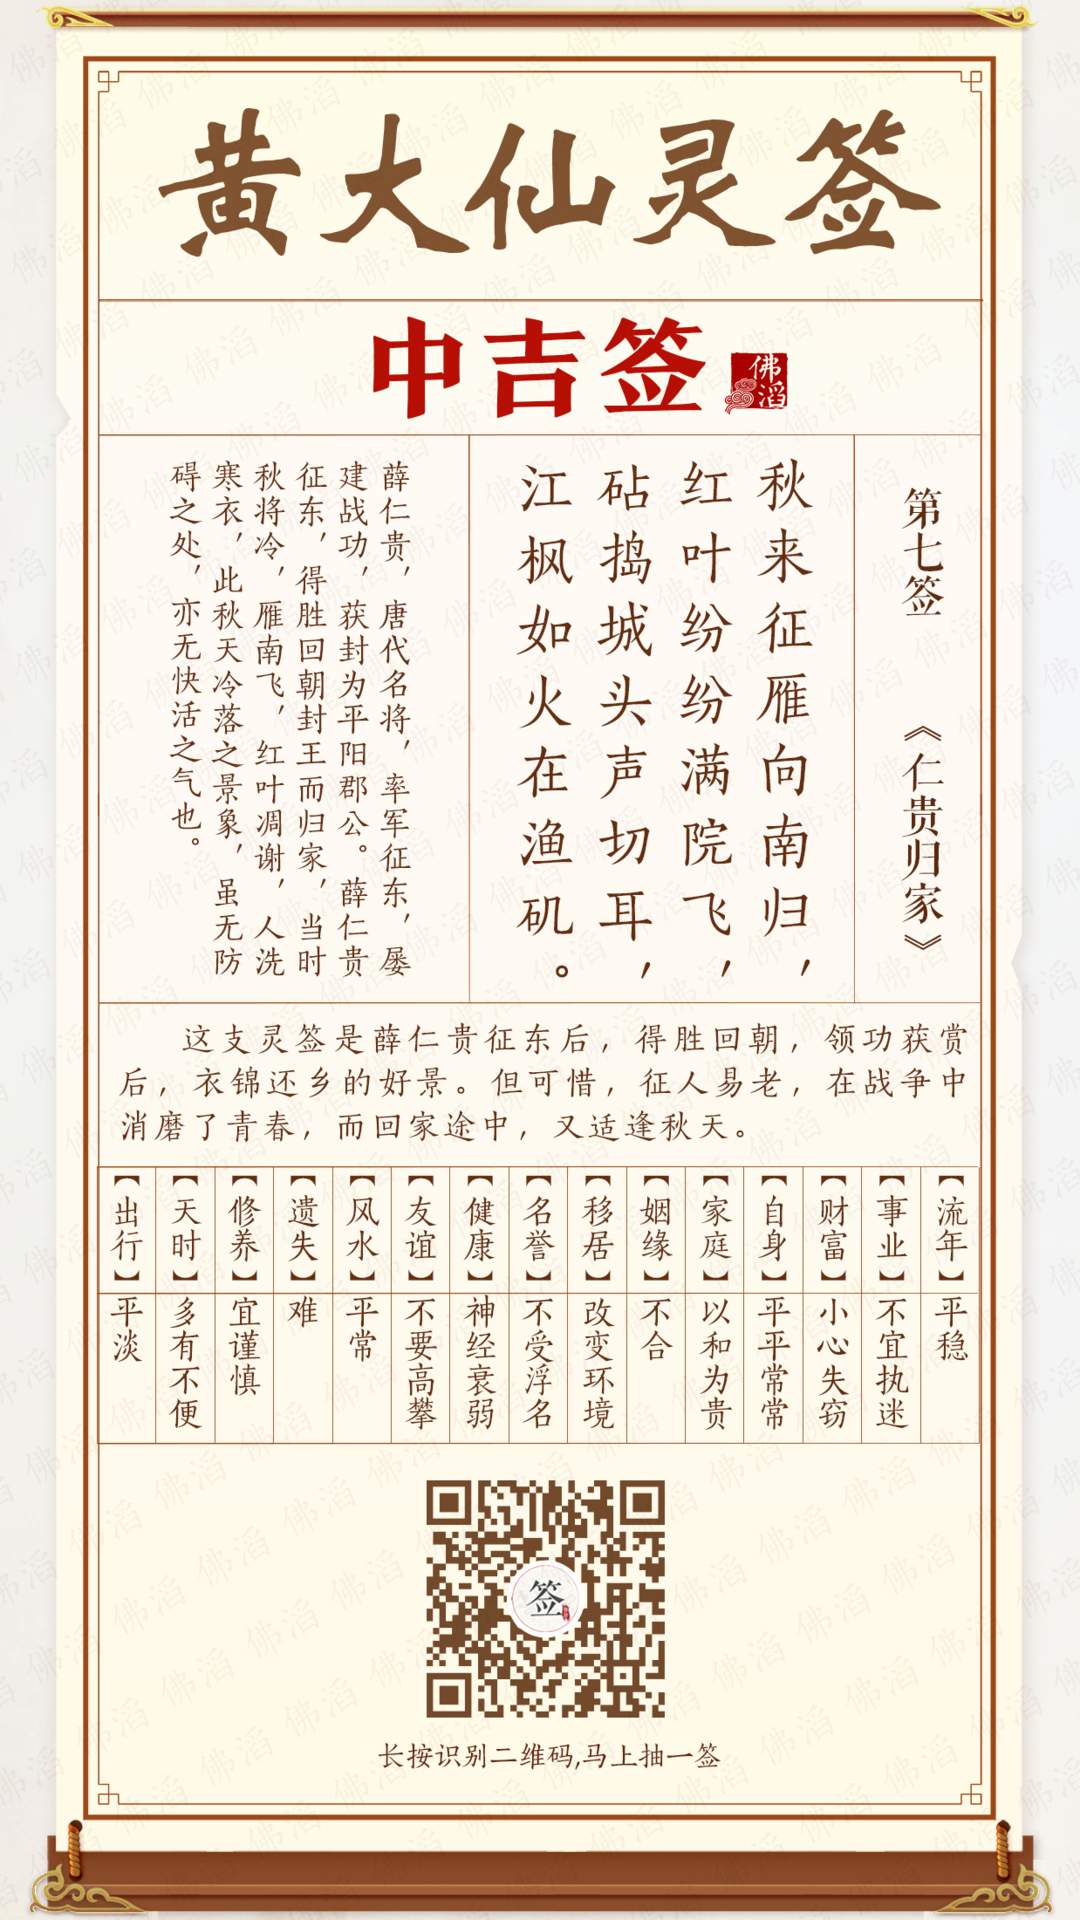 黄大仙灵签
中吉签
佛滔
第七签 《仁贵归家》
秋来征雁向南归，
红叶纷纷满院飞，
砧捣城头声切耳，
江枫如火在渔矶。
薛仁贵，唐代名将，率军征东，屡
建战功，获封为平阳郡公。薛仁贵
征东，得胜回朝封王而归家，当时
秋将冷，雁南飞，红叶凋谢，人洗
寒衣，此秋天冷落之景象，虽无防
碍之处，亦无快活之气也。
这支灵签是薛仁贵征东后，得胜回朝，领功获赏
后，衣锦还乡的好景。但可惜，征人易老，在战争中
消磨了青春，而回家途中，又适逢秋天。
【流年】平稳
【事业】不宜执迷
【财富】小心失窃
【自身】平平常常
【家庭】以和为贵
【姻缘】不合
【移居】改变环境
【名誉】不受浮名
【健康】神经衰弱
【友谊】不要高攀
【风水】平常
【遗失】难
【修养】宜谨慎
【天时】多有不便
【出行】平淡
签
长按识别二维码,马上抽一签